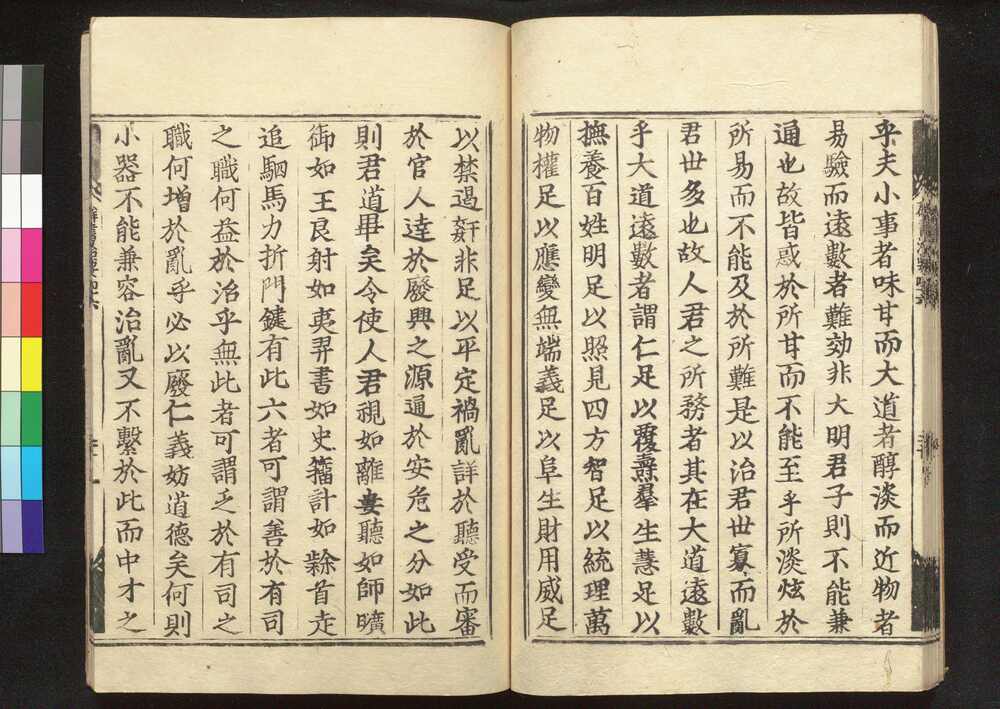 乎夫小事者味甘而大道者醇淡而近物者
易驗而遠數者難効非大明君子則不能兼
通也故皆惑於所甘而不能至乎所淡炫於
所易而不能及於所難是以治君世寡而亂
君世多也故人君之所務者其在大道遠數
乎大道遠數者謂仁足以覆燾羣生慧足以
撫養百姓明足以照見四方智足以統理萬
物權足以應變無端義足以阜生財用威足
以禁遏姧非足以平定禍亂詳於聽受而審
於官人達於廢興之源通於安危之分如此
則君道畢矣令使人君視如離婁聽如師曠
御如王良射如夷羿書如史籀計如隸首走
追駟馬力折門鍵有此六者可謂善於有司
之職何益於治乎無此者可謂乏於有司之
職何增於亂乎必以廢仁義妨道德矣何則
小器不能兼容治亂又不繫於此而中才之